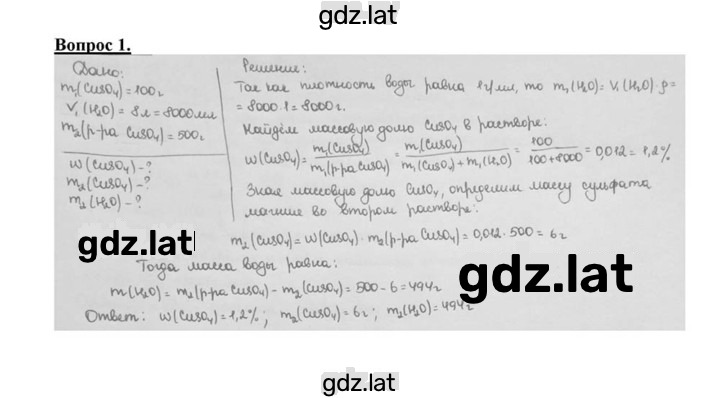 gdz.lat
Вопрос 1.
Дано:
m₁(CuSO₄)=100г
V₁(H₂O)=8л=8000мл
m₂(р-ра CuSO₄)=500г
w(CuSO₄)-?
m₂(CuSO₄)-?
m₂(H₂O)-?
Решение:
Так как плотность воды равна 1г/мл, то m₁(H₂O)=V₁(H₂O)·ρ=
=8000·1=8000г.
Найдём массовую долю CuSO₄ в растворе:
w(CuSO₄)=m₁(CuSO₄)/m₁(р-ра CuSO₄)=m₁(CuSO₄)/(m₁(CuSO₄)+m₁(H₂O))=100/(100+8000)=0,012=1,2%
Зная массовую долю CuSO₄, определим массу сульфата
магние во втором растворе:
m₂(CuSO₄)=w(CuSO₄)·m₂(р-ра CuSO₄)=0,012·500=6г
gdz.lat
gdz.lat
Тогда масса воды равна:
m(H₂O)=m₂(р-ра CuSO₄)-m₂(CuSO₄)=500-6=494г
Ответ: w(CuSO₄)=1,2%; m₂(CuSO₄)=6г; m₂(H₂O)=494г
gdz.lat